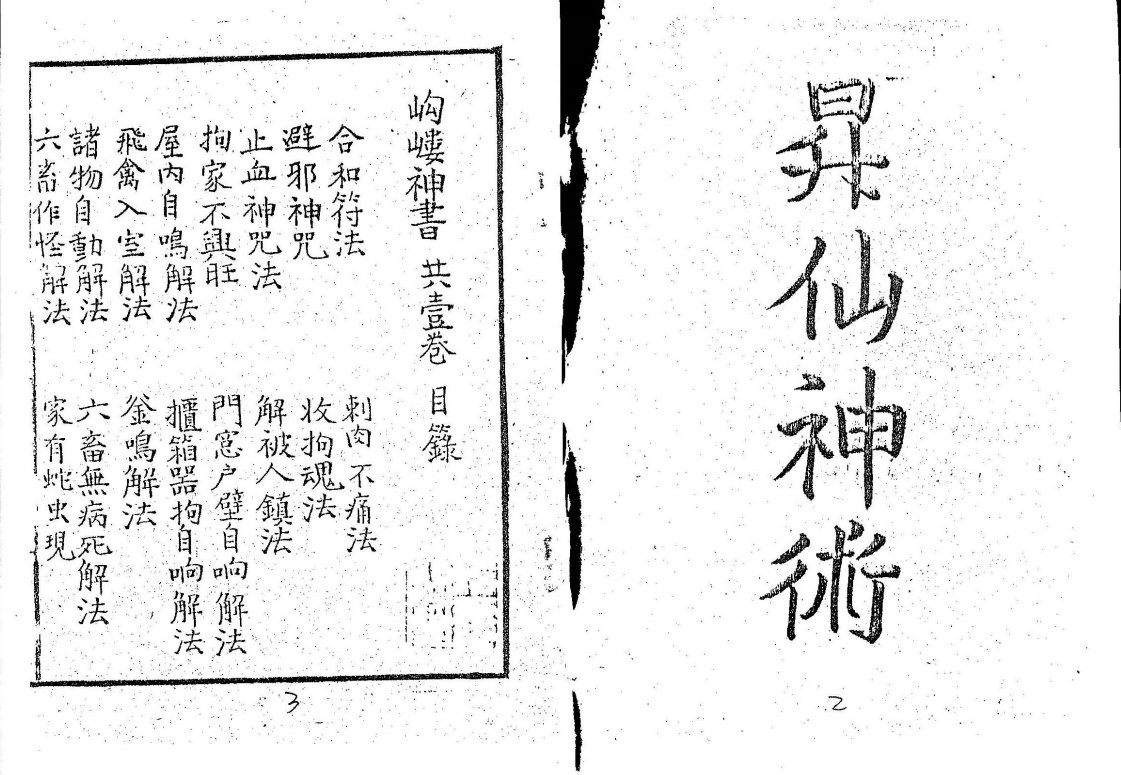 昇仙神術
2
岣嶁神書 共壹卷 目錄
合和符法 刺肉不痛法
避邪神咒 收拘魂法
止血神咒法 解被人鎮法
拘家不興旺 門窓户壁自响解法
屋内自鳴解法 攌箱器拘自响解法
飛禽入室解法 釜鳴解法
諸物自動解法 六畜無病死解法
六畜作怪解法 家有蛇虫現
3